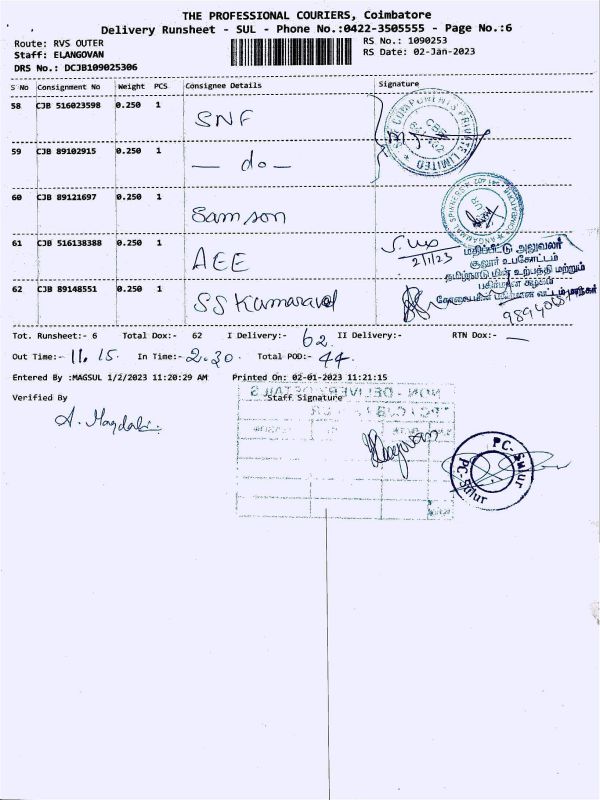 THE PROFESSIONAL COURIERS, Coimbatore
Delivery Runsheet - SUL - Phone No.:0422-3505555 - Page No.:6
Route: RVS OUTER RS No.: 1090253
Staff: ELANGOVAN RS Date: 02-Jan-2023
DRS No.: DCJB109025306
S No Consignment No Weight PCS Consignee Details Signature
58 CJB 516023598 0.250 1 SNF
59 CJB 89102915 0.250 1 — do —
60 CJB 89121697 0.250 1 Samson
61 CJB 516138388 0.250 1 AEE 2/1/23
62 CJB 89148551 0.250 1 SS Kamaraval
COMPONENTS PRIVATE LIMITED
மதிப்பீட்டு அலுவலர்
சூலூர் உபகோட்டம்
தமிழ்நாடு மின் உற்பத்தி மற்றும்
பகிர்மான கழகம்
Tot. Runsheet:- 6 Total Dox:- 62 I Delivery:- 62 II Delivery:- RTN Dox:- —
Out Time:- 11.15 In Time:- 2.30 Total POD:- 44
Entered By :MAGSUL 1/2/2023 11:20:29 AM Printed On: 02-01-2023 11:21:15
Verified By Staff Signature
NON - DELIVERY DETAILS
PC-Sulur
PC-Sulur